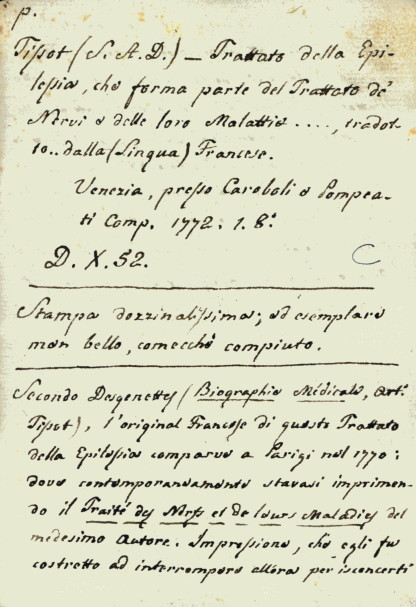 p.
Tissot (S. A. D.) — Trattato della Epi-
lessia, che forma parte del Trattato de'
Nervi e delle loro Malattie ...., tradot-
to.. dalla (Lingua) Francese.
Venezia, presso Caroboli e Pompea-
ti Comp. 1772. 1. 8.°
D. X. 52. C
Stampa dozzinalissima; ed esemplare
non bello, comecchè compiuto.
Secondo Desgenettes (Biographie Médicale, art.
Tissot), l'original Francese di questo Trattato
della Epilessia comparve a Parigi nel 1770:
dove contemporaneamente stavasi imprimen-
do il Traité des Nerfs et de leurs Maladies del
medesimo autore. Impressione, che egli fu
costretto ad interrompere allora per isconcerti